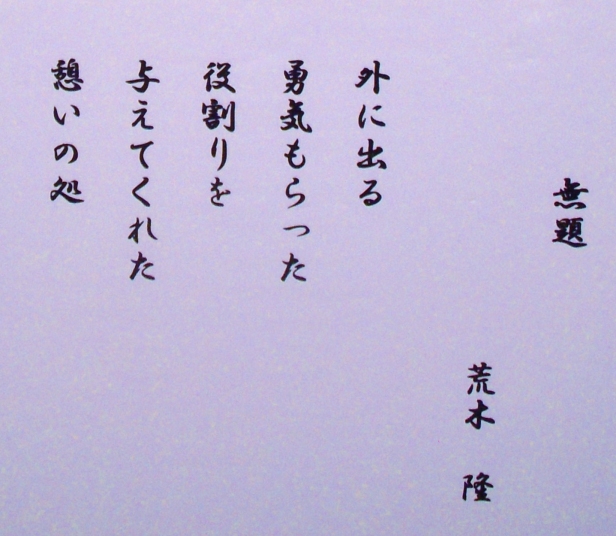 無題
荒木 隆
外に出る
勇気もらった
役割りを
与えてくれた
憩いの処